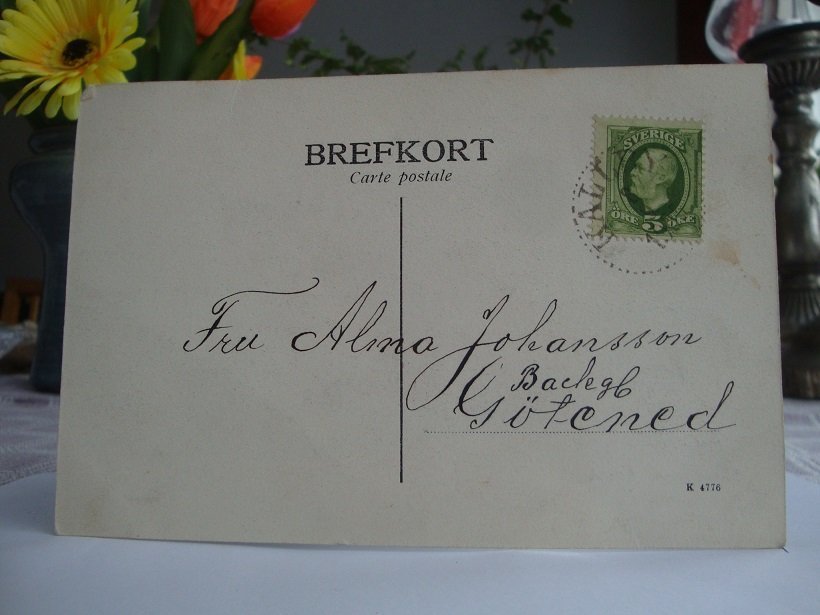 BREFKORT
Carte postale
SVERIGE
ÖRE 5 ÖRE
Fru Alma Johansson
Backeg
Götened
K 4776